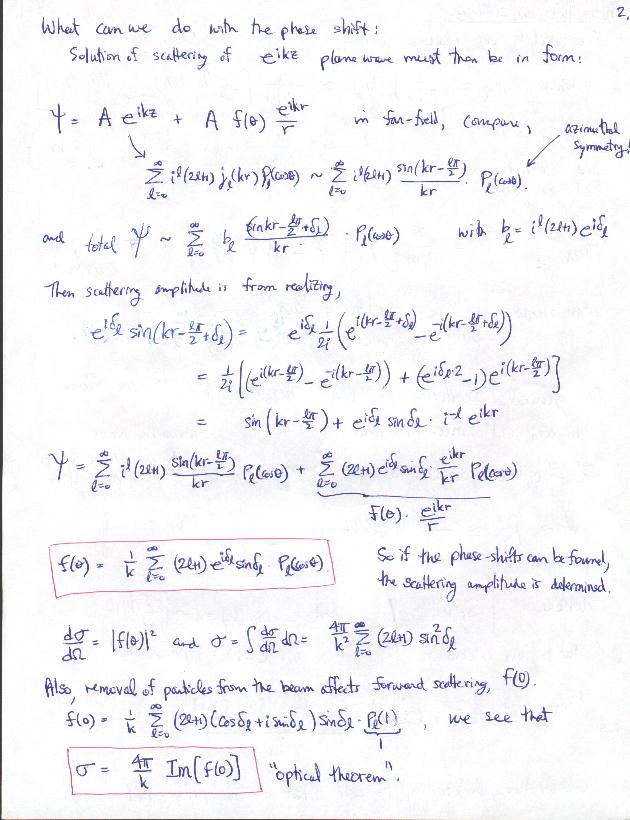 2.
What can we do with the phase shift:
Solution of scattering of e^{ikz} plane wave must then be in form:
Ψ = A e^{ikz} + A f(θ) e^{ikr}/r   in far-field, compare,   azimuthal symmetry!
Σ_{l=0}^{∞} i^l(2l+1) j_l(kr) P_l(cosθ) ~ Σ_{l=0}^{∞} i^l(2l+1) sin(kr-lπ/2)/kr · P_l(cosθ).
and total Ψ ~ Σ_{l=0}^{∞} b_l (sin kr-lπ/2+δ_l)/kr · P_l(cosθ)   with b_l = i^l(2l+1) e^{iδ_l}
Then scattering amplitude is from realizing,
e^{iδ_l} sin(kr-lπ/2+δ_l) = e^{iδ_l} 1/2i (e^{i(kr-lπ/2+δ_l)} - e^{-i(kr-lπ/2+δ_l)})
= 1/2i [(e^{i(kr-lπ/2)} - e^{-i(kr-lπ/2)}) + (e^{iδ_l·2} -1) e^{i(kr-lπ/2)}]
= sin(kr-lπ/2) + e^{iδ_l} sinδ_l · i^{-l} e^{ikr}
Ψ = Σ_{l=0}^{∞} i^l(2l+1) sin(kr-lπ/2)/kr P_l(cosθ) + Σ_{l=0}^{∞} (2l+1) e^{iδ_l} sinδ_l · e^{ikr}/kr P_l(cosθ)
f(θ) · e^{ikr}/r
f(θ) = 1/k Σ_{l=0}^{∞} (2l+1) e^{iδ_l} sinδ_l · P_l(cosθ)   So if the phase-shifts can be found,
the scattering amplitude is determined.
dσ/dΩ = |f(θ)|² and σ = ∫ dσ/dΩ dΩ = 4π/k² Σ_{l=0}^{∞} (2l+1) sin²δ_l
Also, removal of particles from the beam affects forward scattering, f(0).
f(0) = 1/k Σ_{l=0}^{∞} (2l+1)(cosδ_l + i sinδ_l) sinδ_l · P_l(1) , we see that
1
σ = 4π/k Im[f(0)]   "optical theorem".